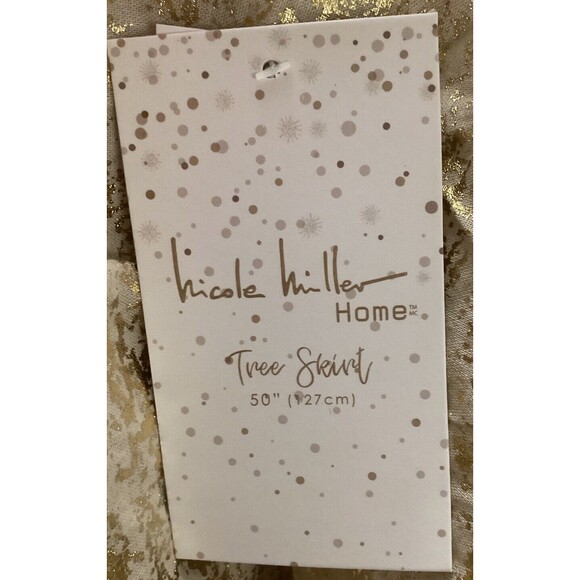 Nicole Miller
Home™ MC
Tree Skirt
50" (127cm)